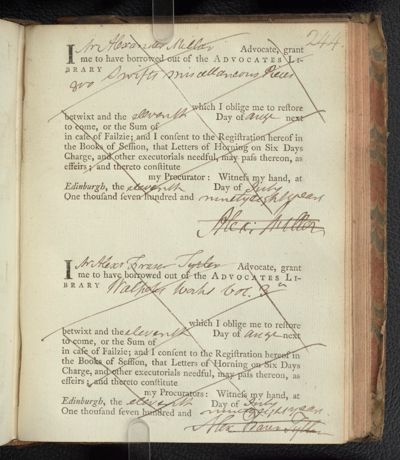 244.
I Mr Alexander Millar Advocate, grant
me to have borrowed out of the ADVOCATES LI-
BRARY Swifts miscellaneous Pieces
8vo
which I oblige me to restore
betwixt and the eleventh Day of next
to come, or the Sum of
in case of Failzie; and I consent to the Registration hereof in
the Books of Session, that Letters of Horning on Six Days
Charge, and other executorials needful, may pass thereon, as
effeirs; and thereto constitute
my Procurator: Witness my hand, at
Edinburgh, the eleventh Day of July
One thousand seven hundred and ninety eight years
Alex. Millar
I Mr Alexr Fraser Tytler Advocate, grant
me to have borrowed out of the ADVOCATES LI-
BRARY Walpoles Works Vol.
which I oblige me to restore
betwixt and the eleventh Day of next
to come, or the Sum of
in case of Failzie; and I consent to the Registration hereof in
the Books of Session, that Letters of Horning on Six Days
Charge, and other executorials needful, may pass thereon, as
effeirs; and thereto constitute
my Procurators: Witness my hand, at
Edinburgh, the eleventh Day of July
One thousand seven hundred and ninety eight years
Alex Fraser Tytler